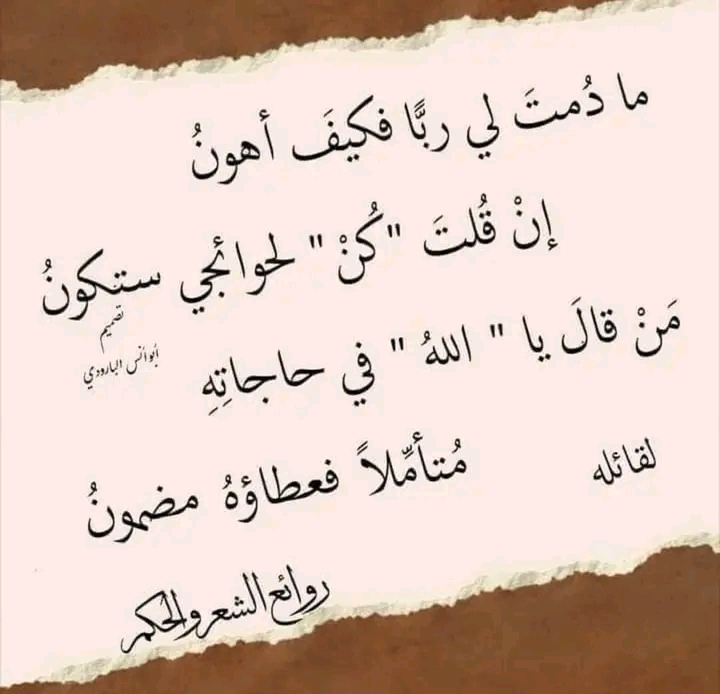 ما دُمتَ لي ربًّا فكيفَ أهونُ
إنْ قُلتَ "كُنْ" لحوائجي ستكونُ
تصميم
أبو أنس البارودي
مَنْ قالَ يا " اللهُ " في حاجاتِهِ
مُتأمِّلاً فعطاؤهُ مضمونُ
لقائله
روائع الشعر والحكم